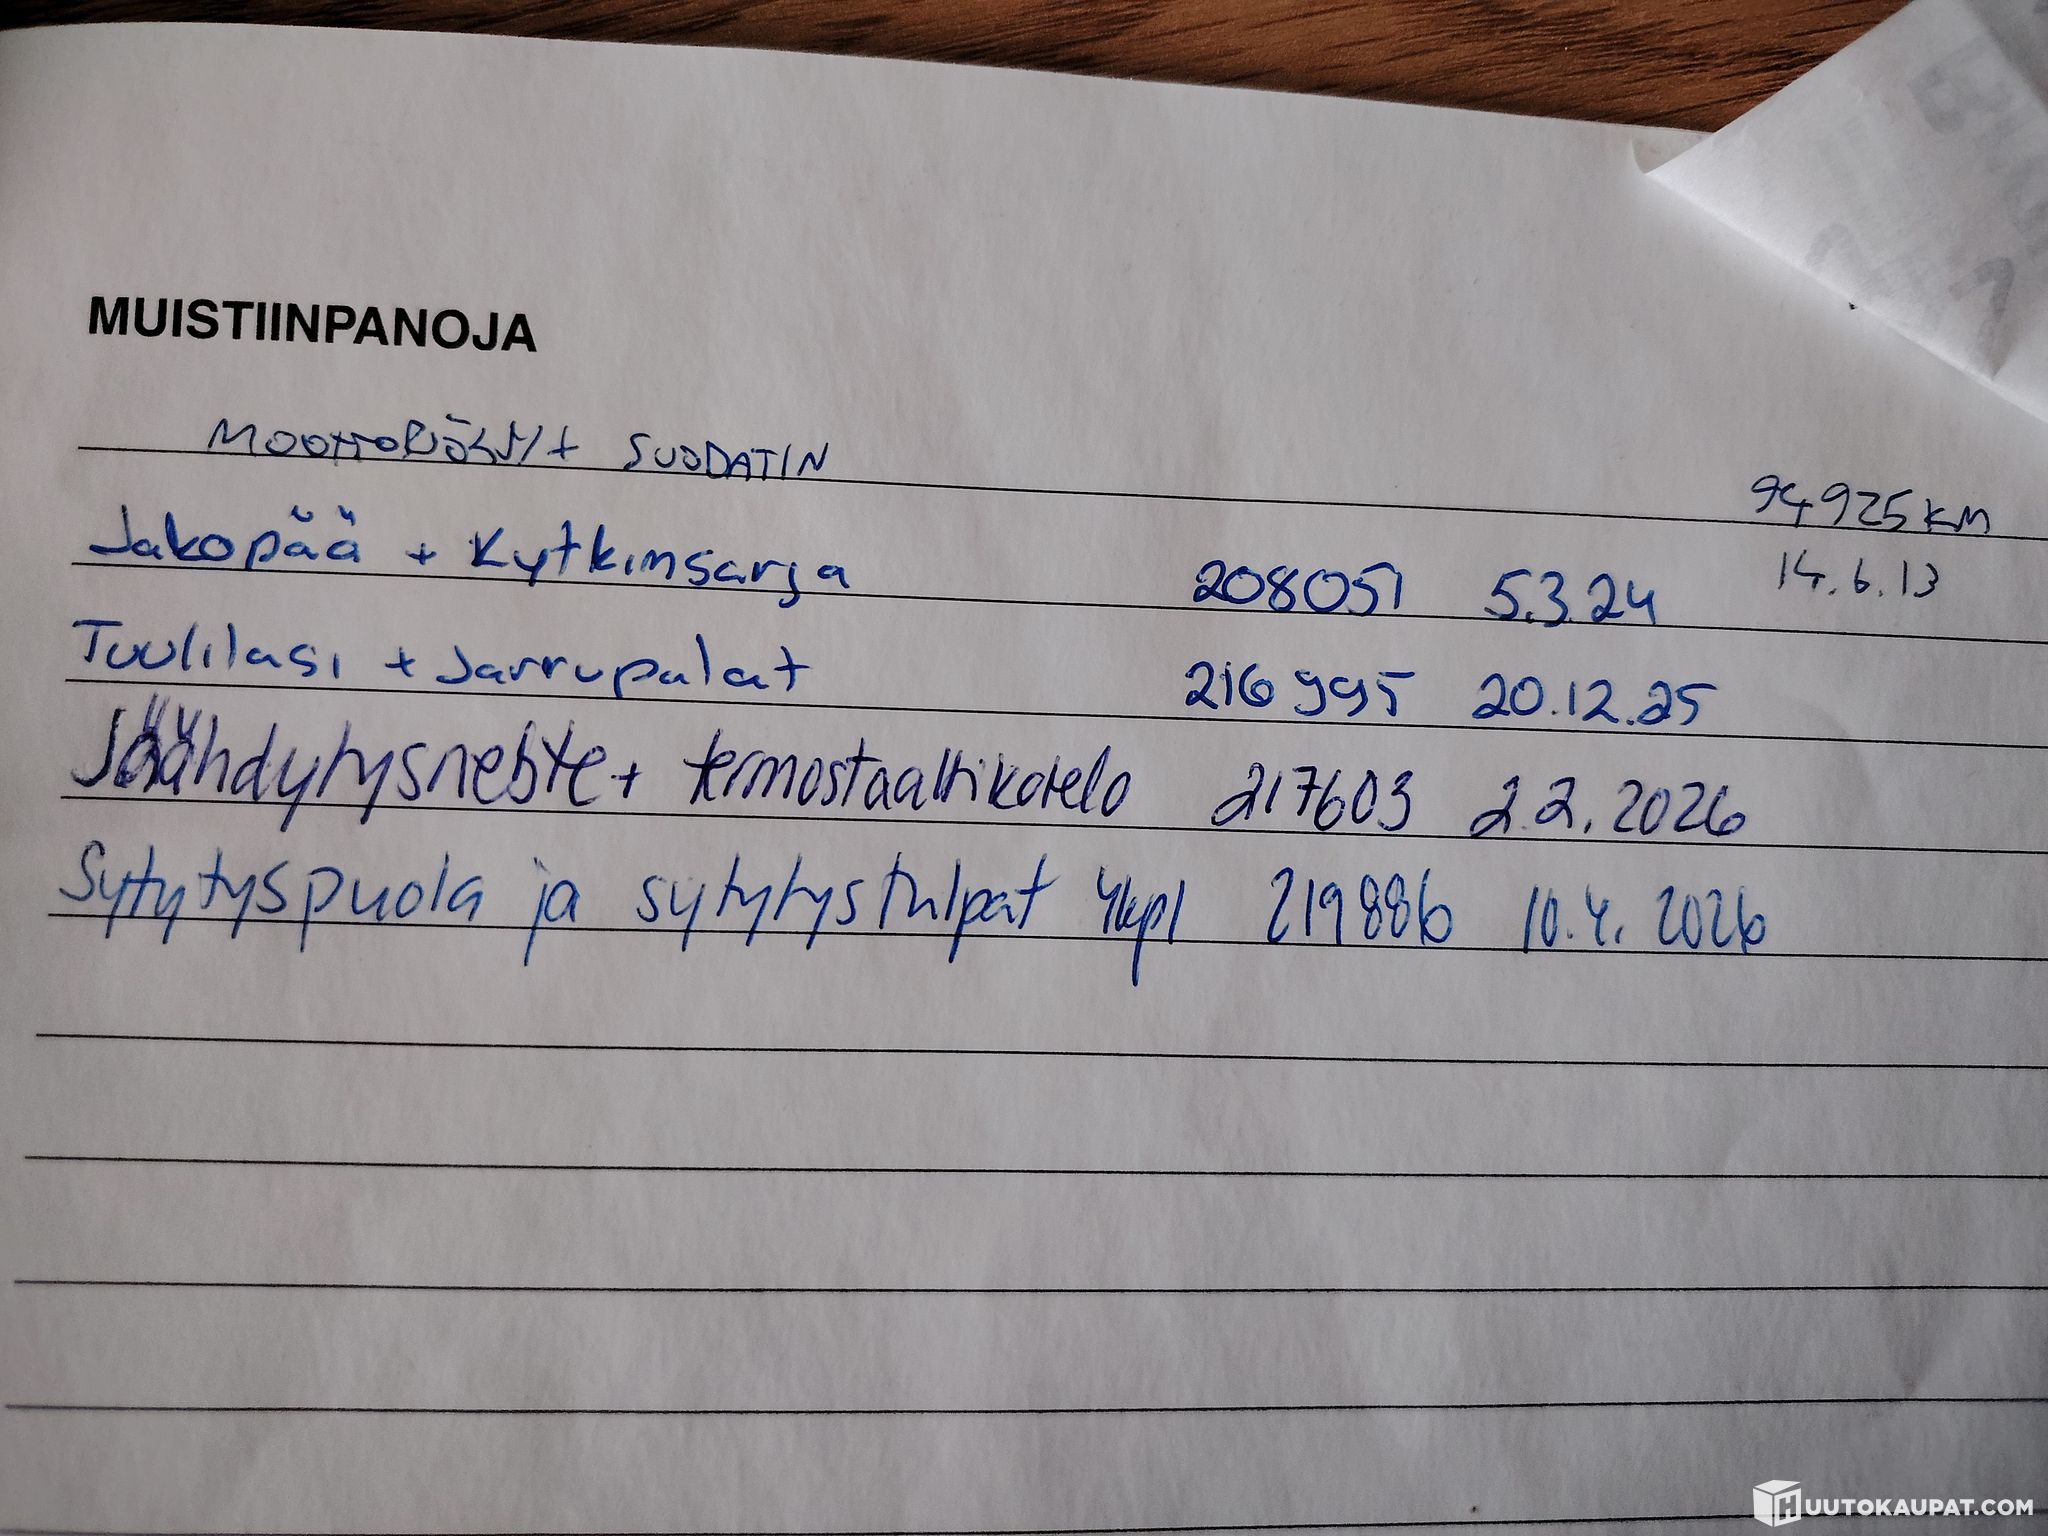 MUISTIINPANOJA
MOOTTORIÖLJY + SUODATIN 94925 KM
14.6.13
Jakopää + Kytkinsarja 208051 5.3.24
Tuulilasi + Jarrupalat 216 995 20.12.25
Jäähdytysneste + termostaattikotelo 217603 2.2.2026
Sytytyspuola ja sytytystulpat 4kpl 219886 10.4.2026
HUUTOKAUPAT.COM